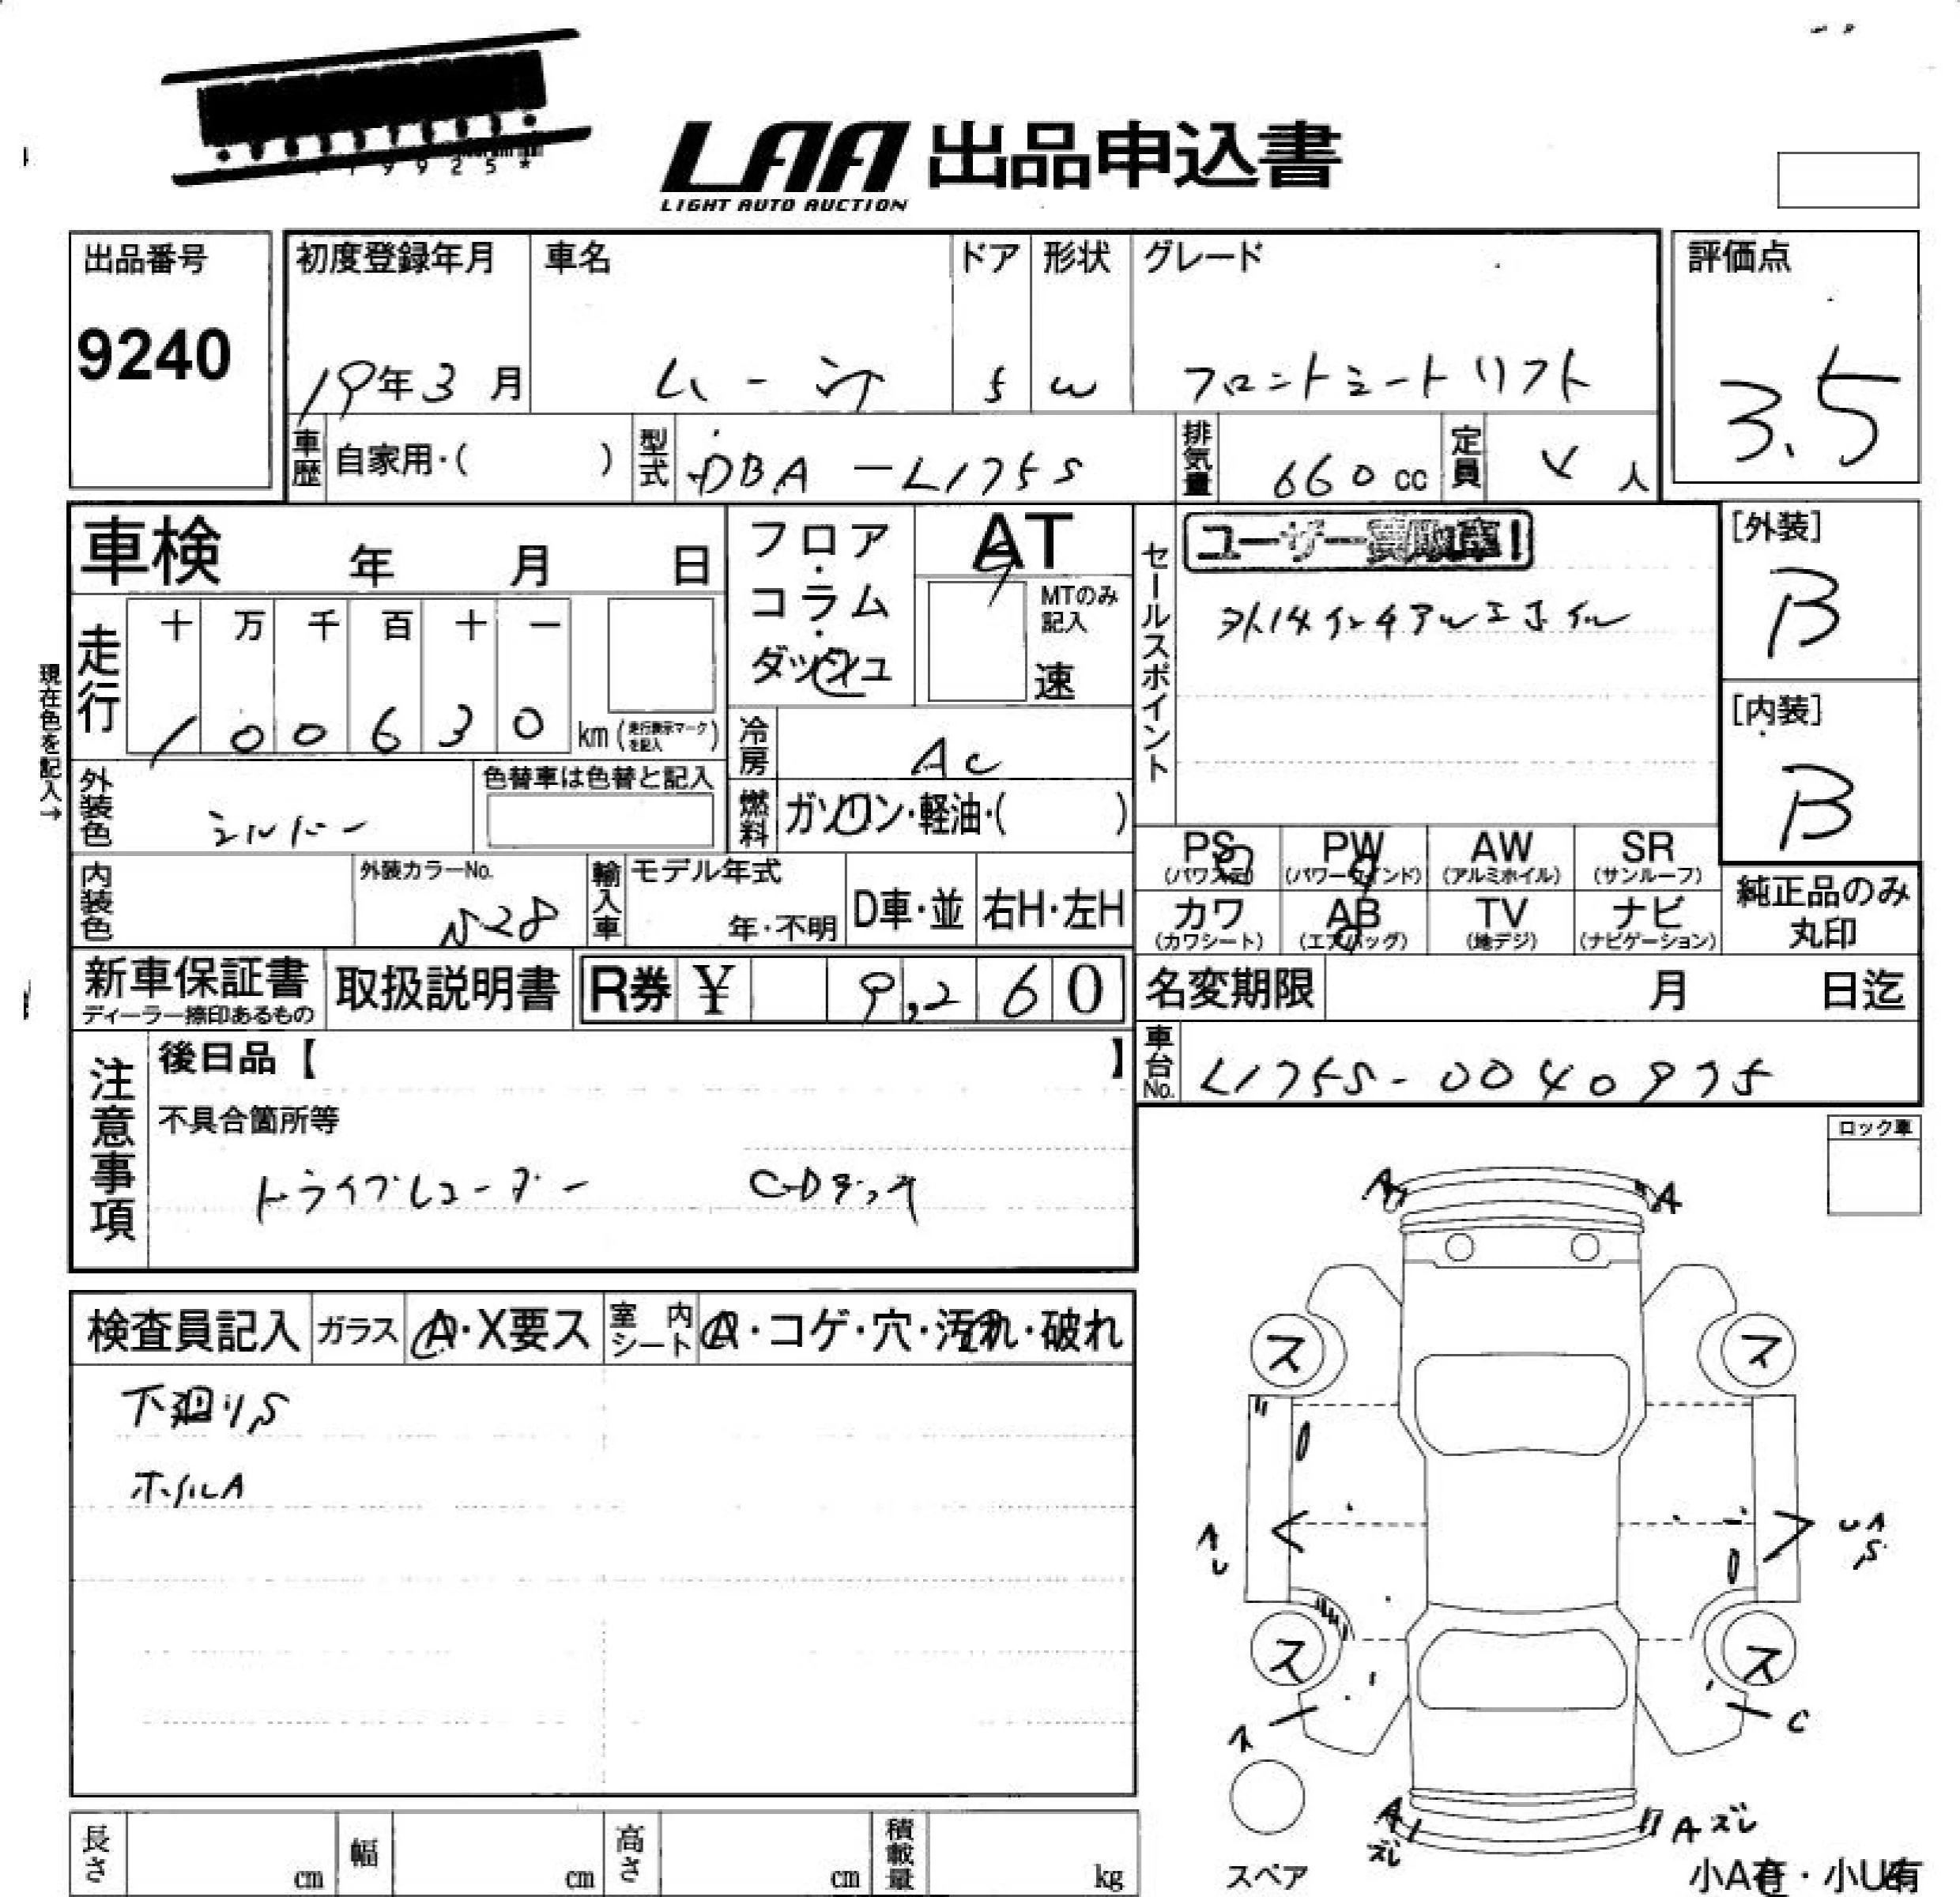 LAA 出品申込書
LIGHT AUTO AUCTION
出品番号
9240
初度登録年月 車名 ドア 形状 グレード
19年3月 ムーヴ 5 W フロントシートリフト
評価点
3.5
車歴 自家用・( ) 型式 DBA-L175S 排気量 660cc 定員 4人
車検 年 月 日
走行 十 万 千 百 十 一
1 0 0 6 3 0 km (走行表示マークを記入)
現在色を記入→
外装色 シルバー
色替車は色替と記入
内装色 外装カラーNo. S28
輸入車 モデル年式 年・不明 D車・並 右H・左H
フロア・コラム・ダッシュ
AT
MTのみ記入
速
冷房 AC
燃料 ガソリン・軽油・( )
セールスポイント
ユーザー買取車!
社外14インチアルミホイル
[外装]
B
[内装]
B
PS (パワステ) PW (パワーウインド) AW (アルミホイル) SR (サンルーフ)
カワ (カワシート) AB (エアバッグ) TV (地デジ) ナビ (ナビゲーション)
純正品のみ
丸印
新車保証書
ディーラー捺印あるもの
取扱説明書
R券 ¥ 9,260
名変期限 月 日迄
車台No. L175S-0040975
注意事項
後日品【 】
不具合箇所等
ドライブレコーダー CDデッキ
ロック車
検査員記入 ガラス A・X要ス 室内シート A・コゲ・穴・汚れ・破れ
下廻りS
ホイルA
A A
ス ス
A
U
U A
S
ス ス
C
A
ズレ
A ズレ
スペア
小A有・小U有
長さ cm 幅 cm 高さ cm 積載量 kg